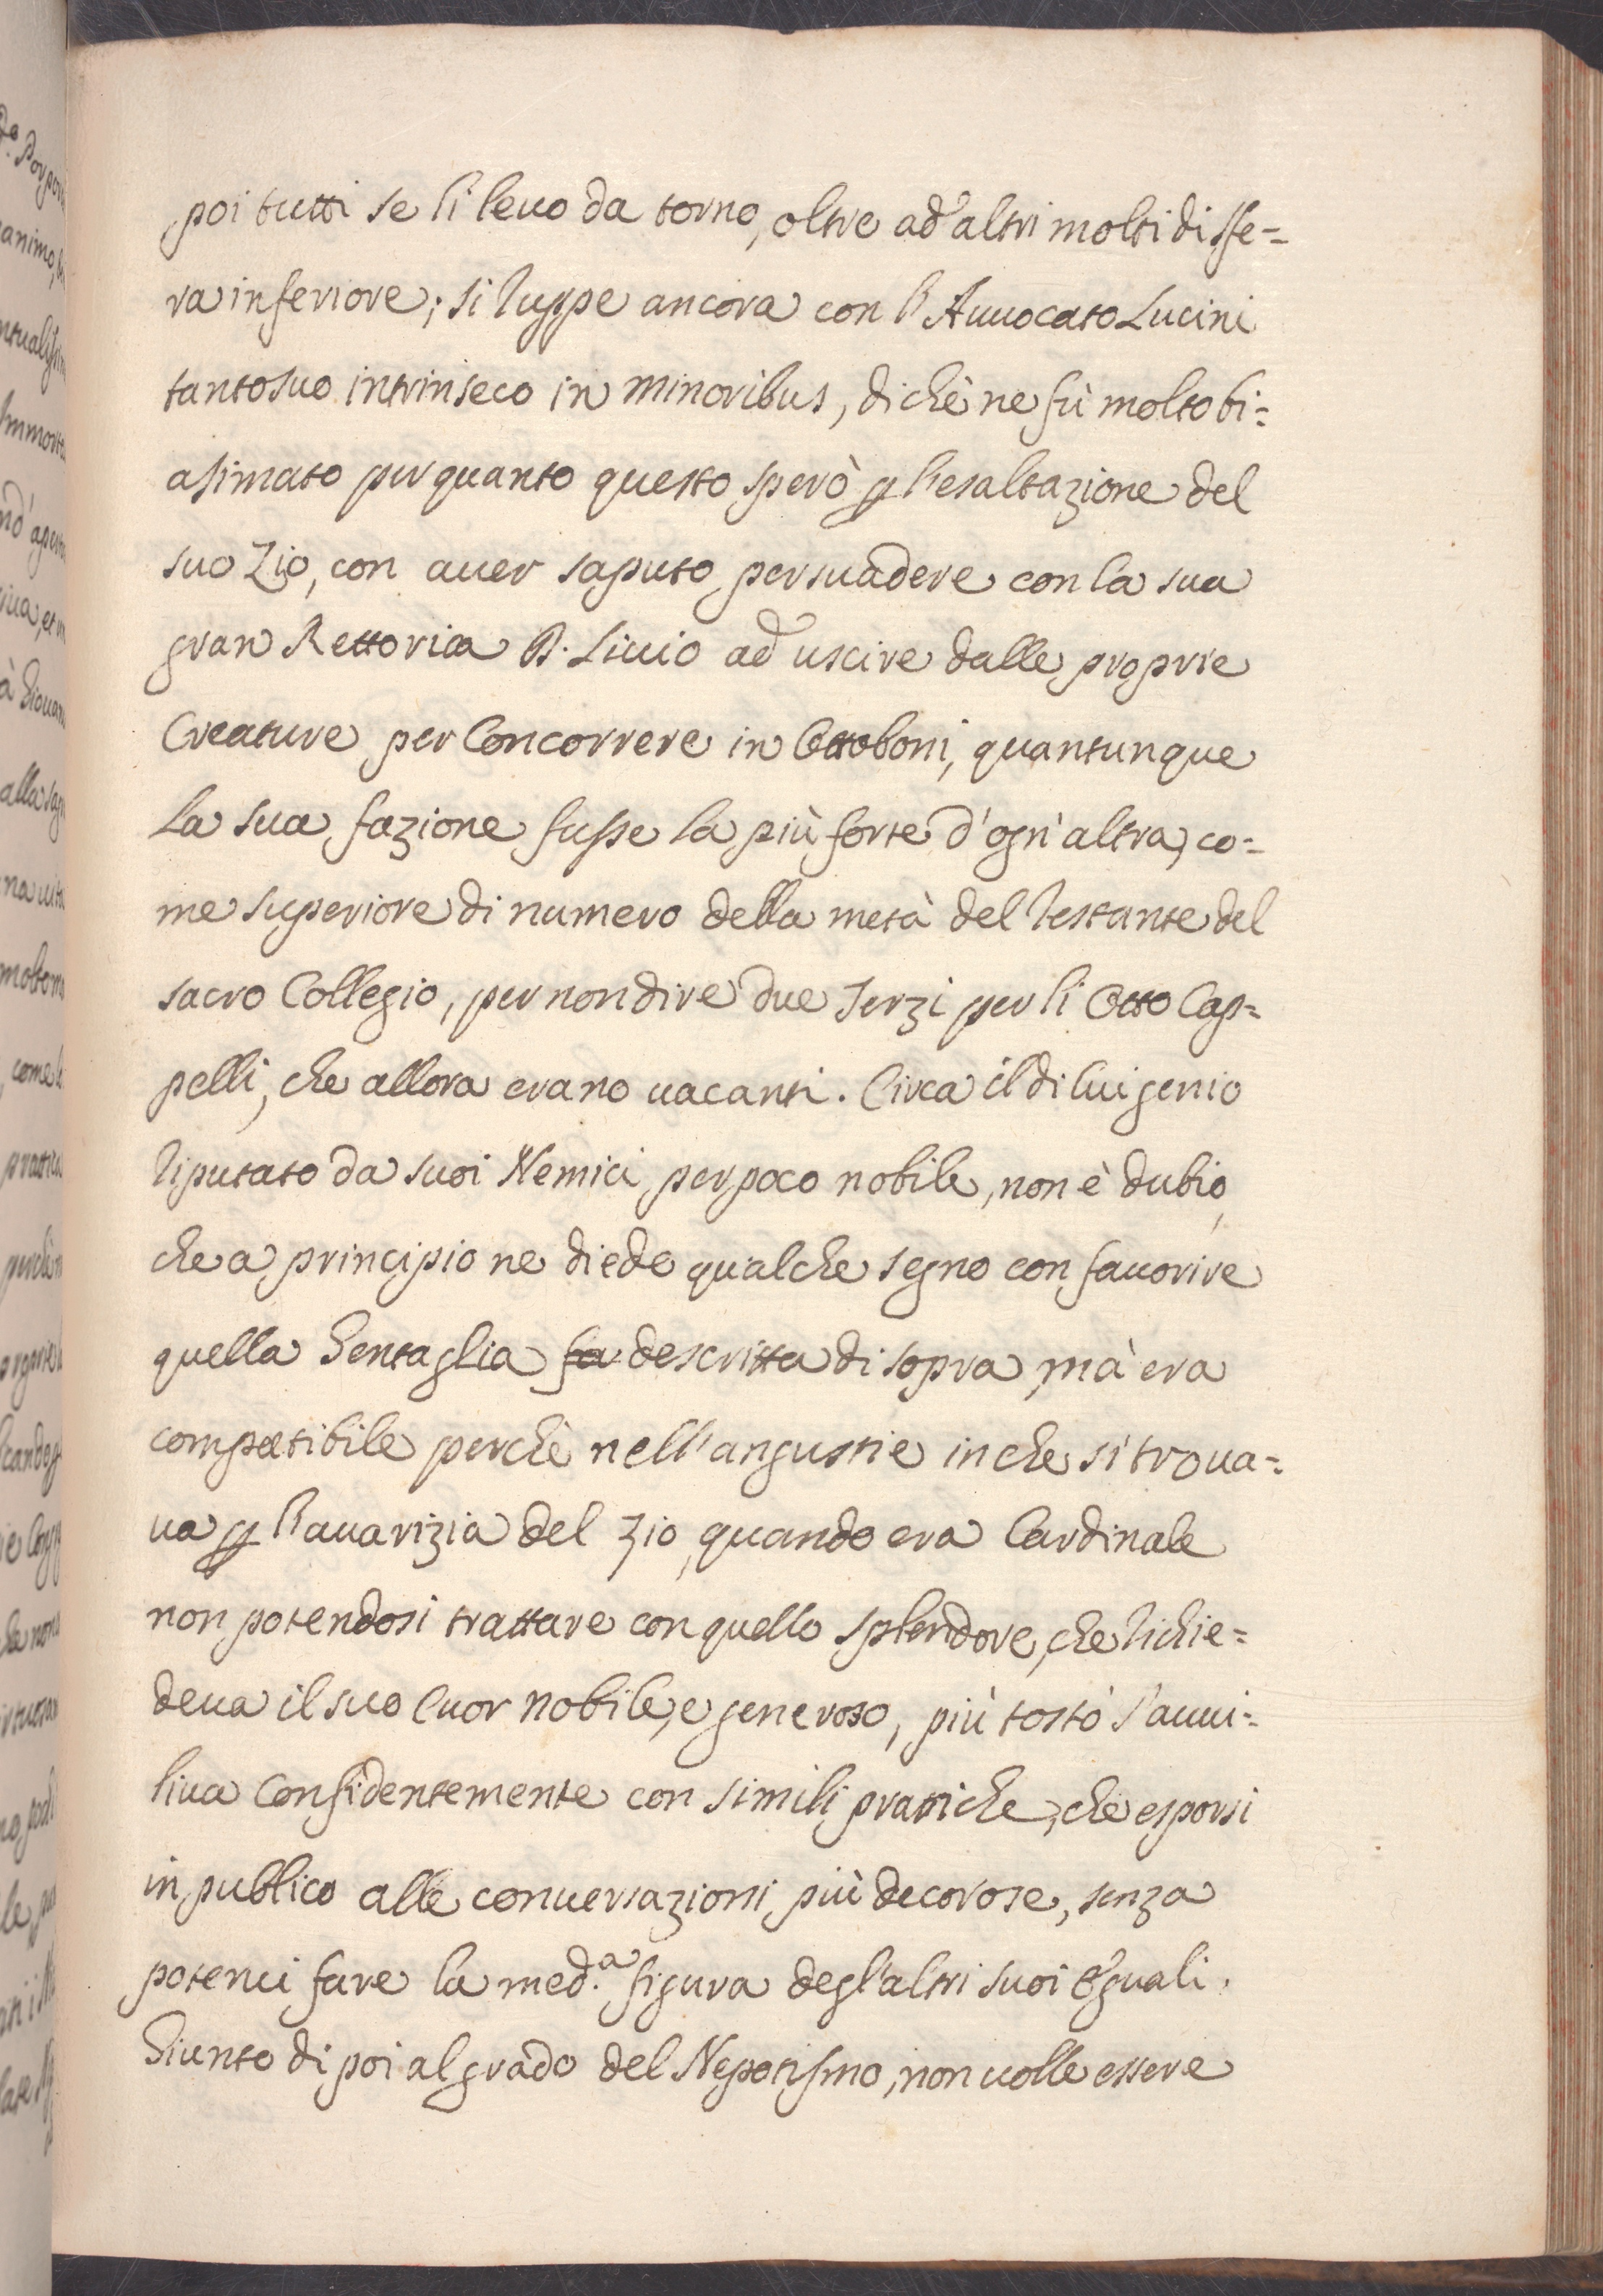 poi tutti se li levo da torno, oltre ad altri molti di sfe=
ra inferiore; si ruppe ancora con l'Auuocato Lucini
tanto suo intrinseco in minoribus, di chè ne fù molto bi=
asimato per quanto questo sperò p l'esaltazione del
suo Zio, con auer saputo persuadere con la sua
gran Rettorica D. Liuio ad uscire dalle proprie
Creature per Concorrere in Ottoboni, quantunque
la sua fazione fusse la più forte d'ogn'altra, co=
me superiore di numero della metà del restante del
sacro Collegio, per non dire due Terzi per li Otto Cap=
pelli, che allora erano uacanti. Circa il di lui genio
riputato da suoi Nemici per poco nobile, non è dubio,
che a principio ne diede qualche segno con fauorire
quella Gentaglia descritta di sopra, mà era
compatibile perchè nell'angustie in che si troua=
ua p l'auarizia del Zio, quando era Cardinale
non potendosi trattare con quello splendore, che richie=
deua il suo Cuor nobile, e generoso, più tosto s'auui=
liua Confidentemente con simili pratiche, che esporsi
in publico alle conuersazioni più decorose, senza
poterui fare la med.a figura degl'altri suoi Eguali.
Giunto di poi al grado del Nepotismo, non uolle essere